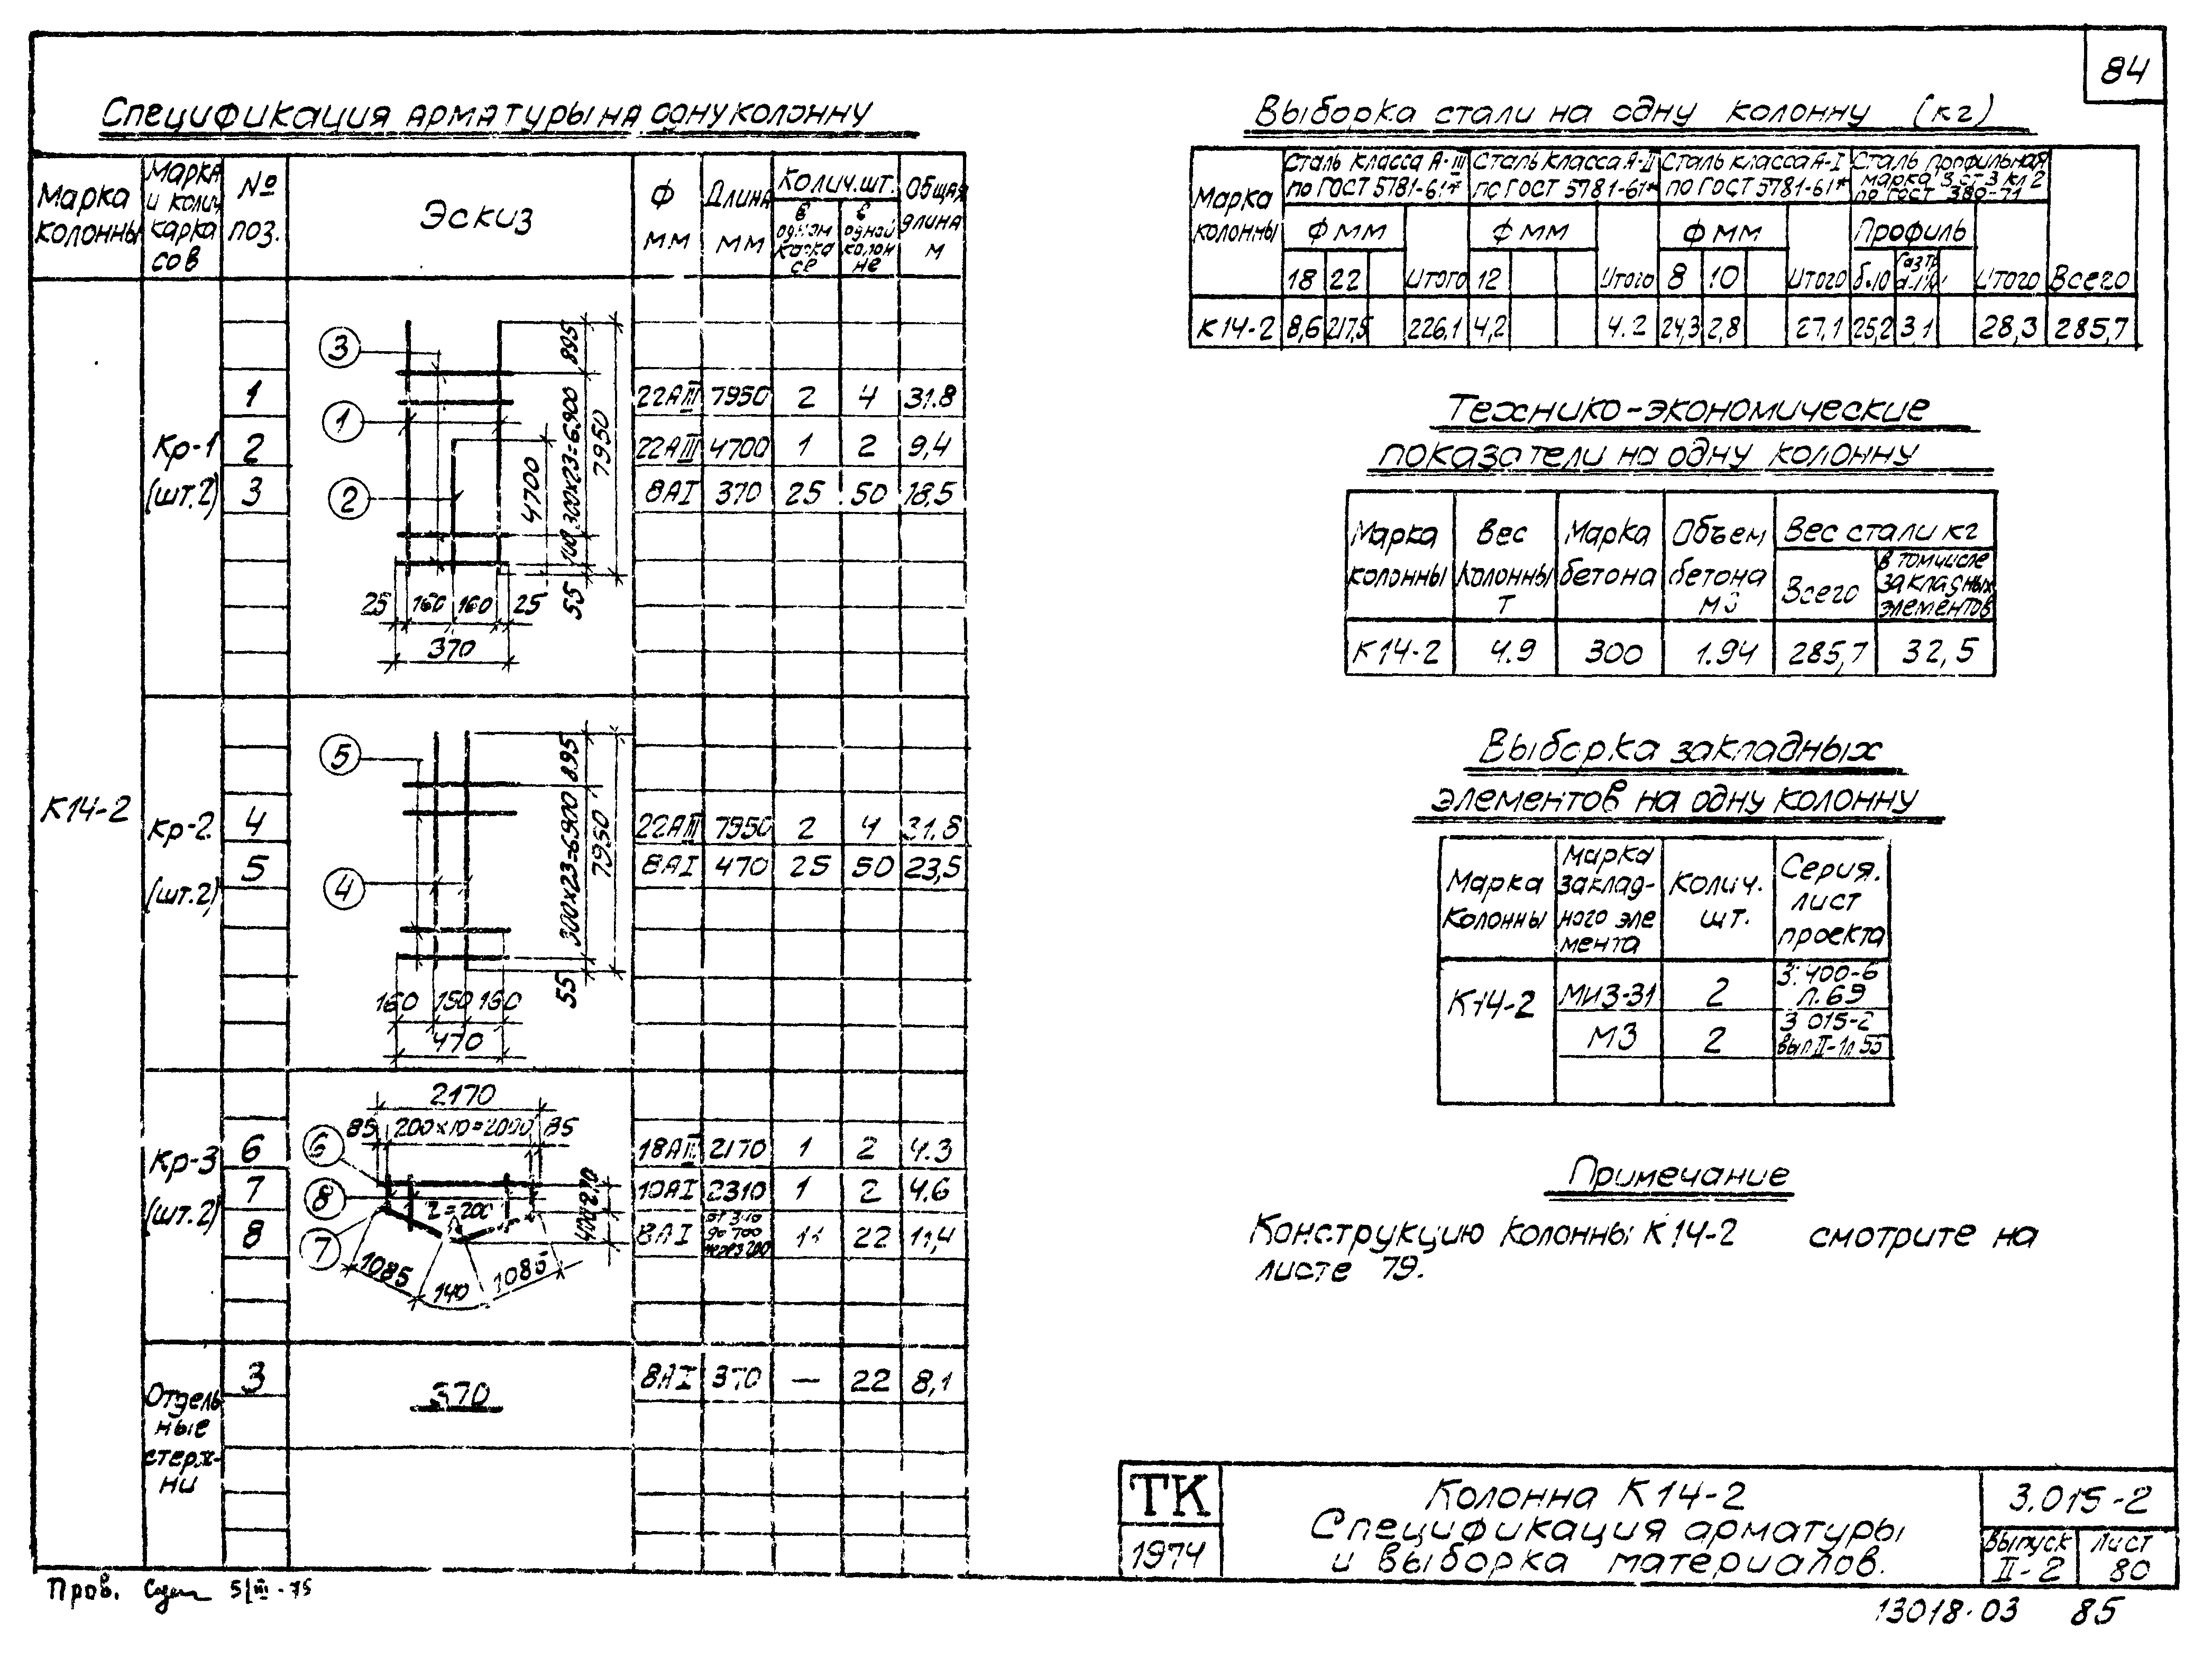 84
Спецификация арматуры на одну колонну
Марка колонны
Марка и колич каркасов
№ поз.
Эскиз
Ф мм
Длина мм
Колич.шт.
в одном каркасе
в одной колонне
Общая длина м
К14-2
Кр-1 (шт.2)
3
1
2
895
300х23=6900
100
55
7950
4700
25 160 160 25
370
1 22АIII 7950 2 4 31.8
2 22АIII 4700 1 2 9,4
3 8АI 370 25 50 18,5
Кр-2 (шт.2)
5
4
895
300х23=6900
55
7950
160 150 160
470
4 22АIII 7950 2 4 31.8
5 8АI 470 25 50 23,5
Кр-3 (шт.2)
2170
85 200х10=2000 85
6
8
7
r=200
400
270
1085
140
1085
6 18АIII 2170 1 2 4.3
7 10АI 2310 1 2 4.6
8 8АI до 700 через 200 11 22 11,4
Отдельные стержни
370
3 8АI 370 — 22 8,1
Выборка стали на одну колонну (кг)
Марка колонны
Сталь класса А-III по ГОСТ 5781-61*
Сталь класса А-II по ГОСТ 5781-61*
Сталь класса А-I по ГОСТ 5781-61*
Сталь профильная марка 3 ст 3 кл 2 по ГОСТ 380-71
Ф мм Ф мм Ф мм Профиль
18 22 Итого 12 Итого 8 10 Итого б.10 Итого Всего
К14-2 8,6 217,5 226,1 4,2 4.2 24,3 2,8 27,1 25,2 3.1 28,3 285,7
Технико-экономические
показатели на одну колонну
Марка колонны
Вес колонны т
Марка бетона
Объем бетона м3
Вес стали кг
Всего
в том числе закладных элементов
К14-2 4.9 300 1.94 285,7 32,5
Выборка закладных
элементов на одну колонну
Марка колонны
Марка закладного элемента
Колич. шт.
Серия. лист проекта
К14-2 МИЗ-31 2 3.400-6 л.69
М3 2 3 015-2 вып II-1л 55
Примечание
Конструкцию колонны К14-2 смотрите на
листе 79.
ТК
1974
Колонна К14-2
Спецификация арматуры
и выборка материалов.
3.015-2
Выпуск II-2
Лист 80
Пров. 5/III-75
13018-03 85